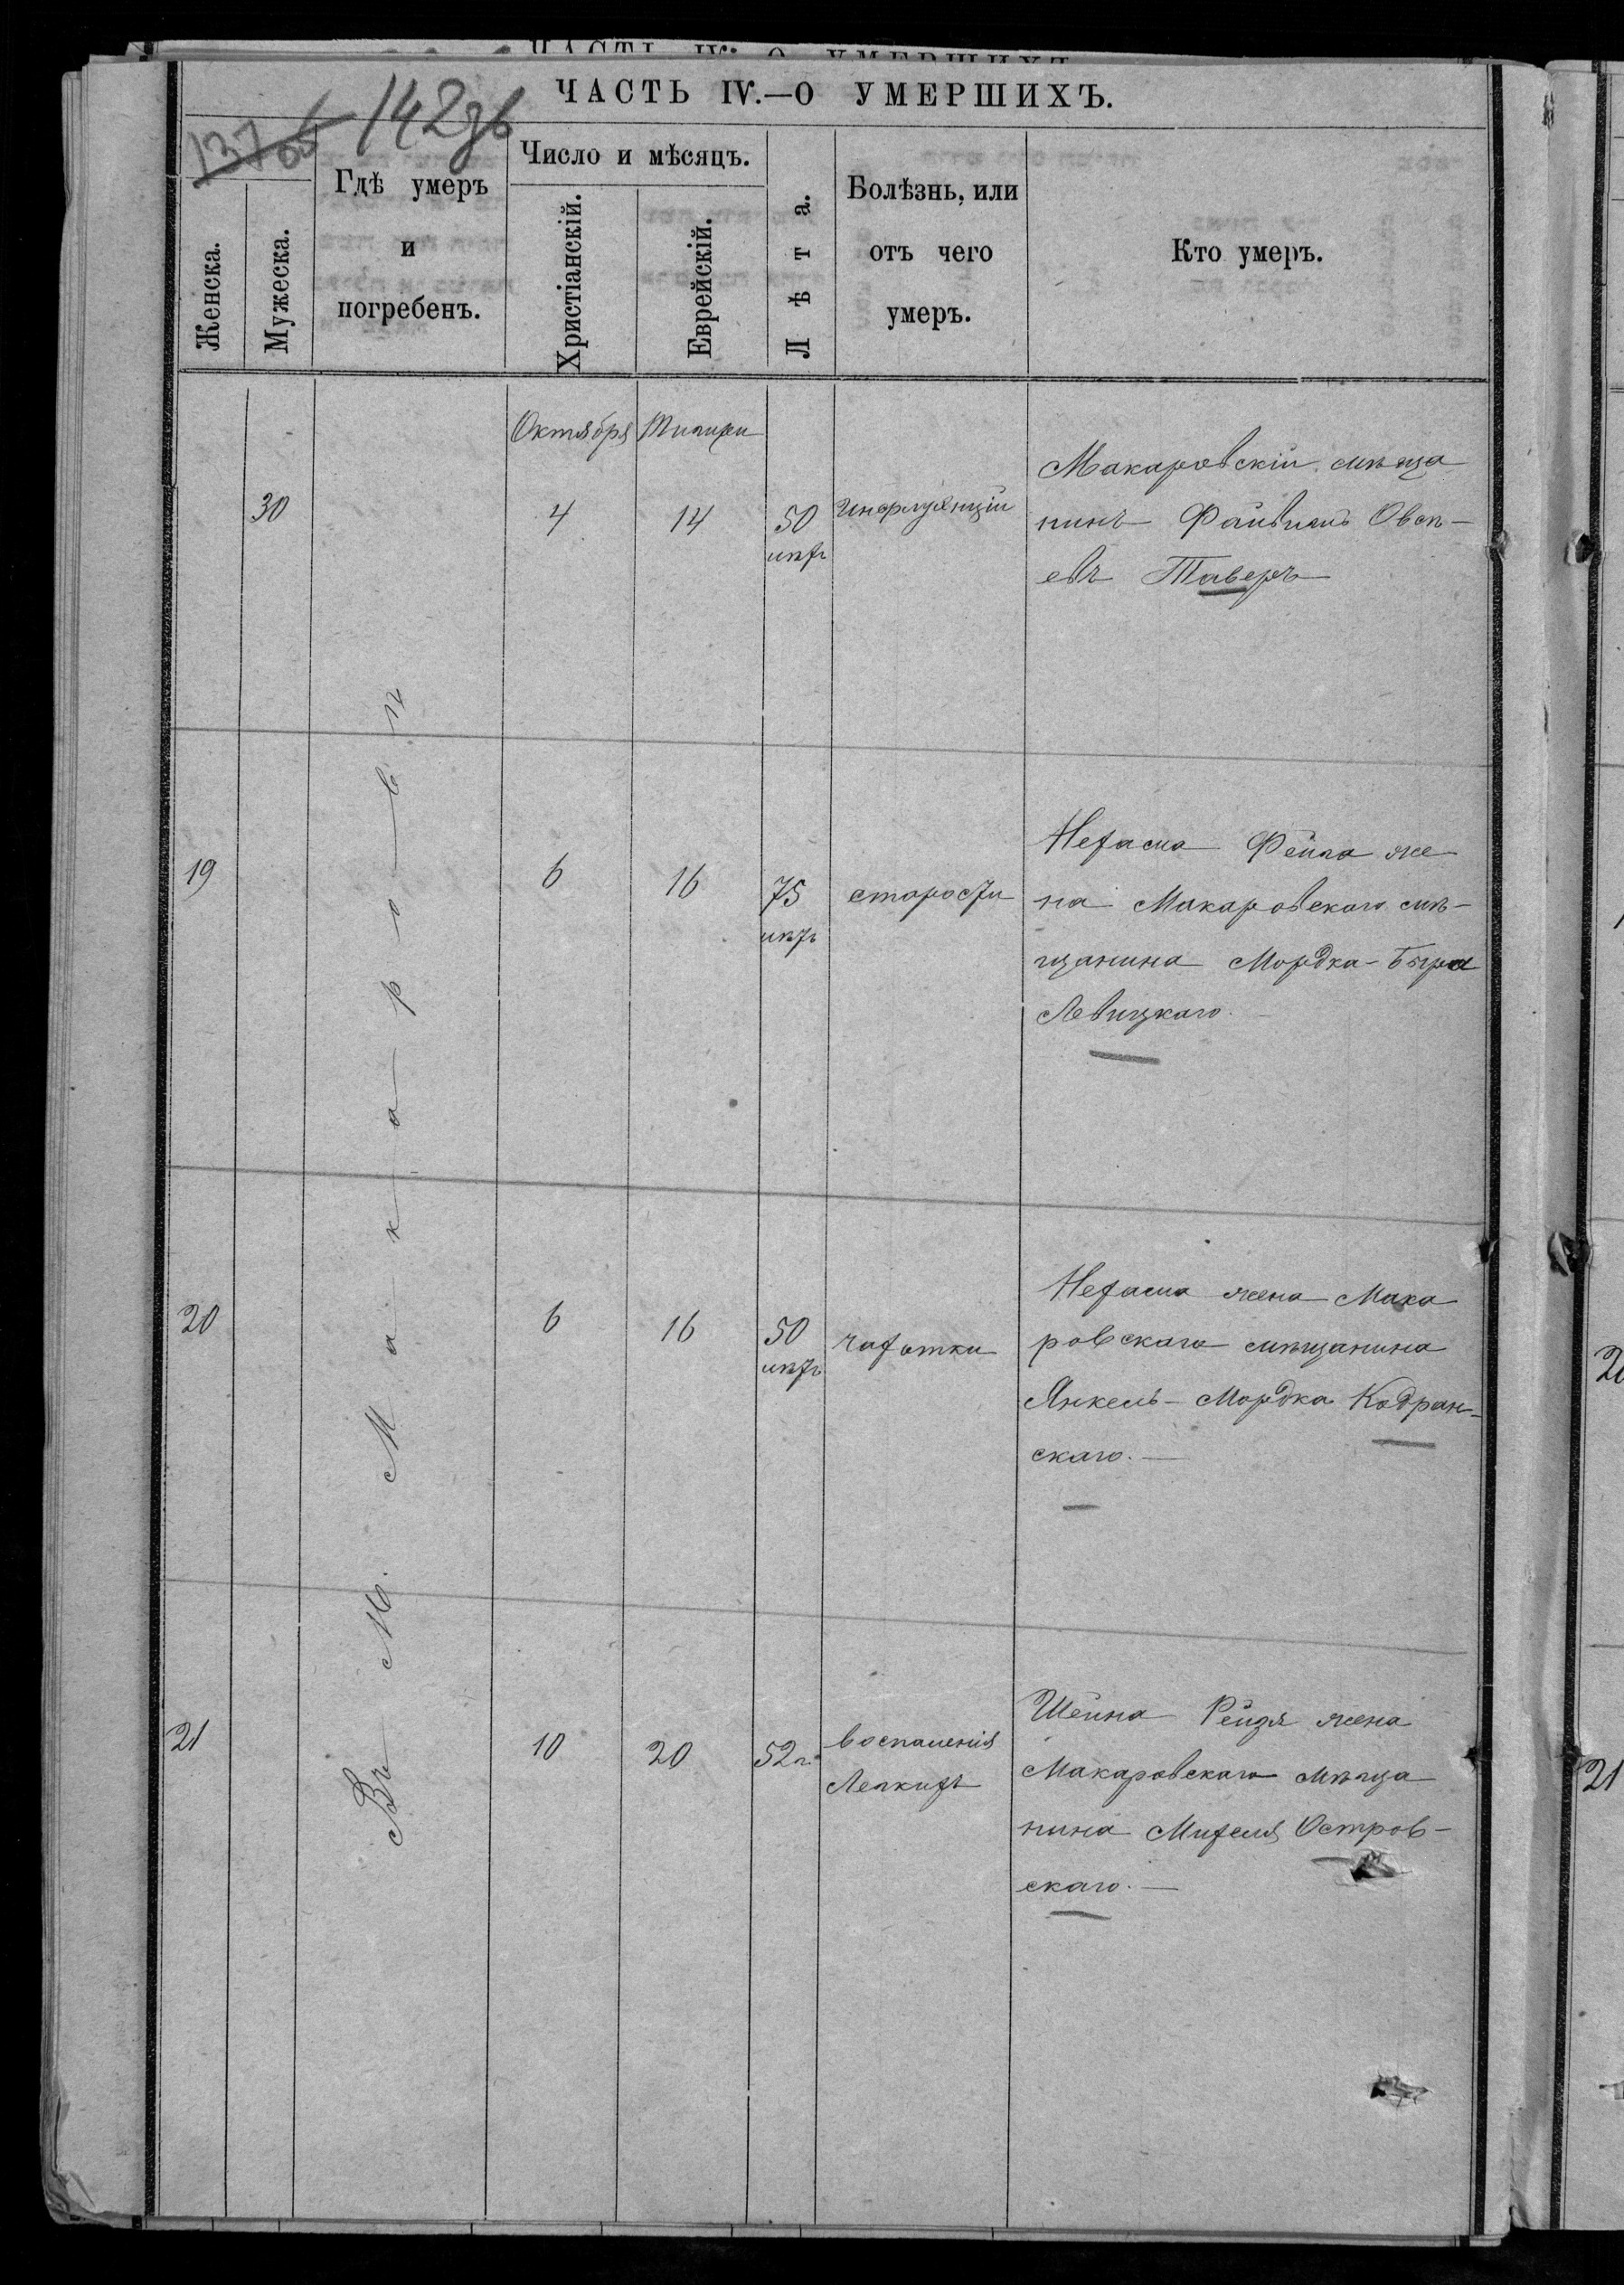 ЧАСТЬ IV.—О УМЕРШИХЪ.
137об 142дв
Женска.
Мужеска.
Гдѣ умеръ
и
погребенъ.
Число и мѣсяцъ.
Христіанскій.
Еврейскій.
Лѣта.
Болѣзнь, или
отъ чего
умеръ.
Кто умеръ.
Октября Тишри
30 4 14 50 лѣтъ
Макаровскій мѣща
нинъ Файвишъ Овсѣ-
евъ Таверъ
19 6 16 75 лѣтъ старости
Нехама Фейга же
на Макаровскаго мѣ-
щанина Мордка-Бера
Левицкаго.
20 6 16 50 лѣтъ чахотки
Нехама жена Мака
ровскаго мѣщанина
Янкель-Мордка Кодран-
скаго.—
21 10 20 52 л. воспаленія
Легкихъ
Шейна Рейзя жена
Макаровскаго мѣща
нина Михеля Остров-
скаго.—
Въ М. Макаровѣ
21